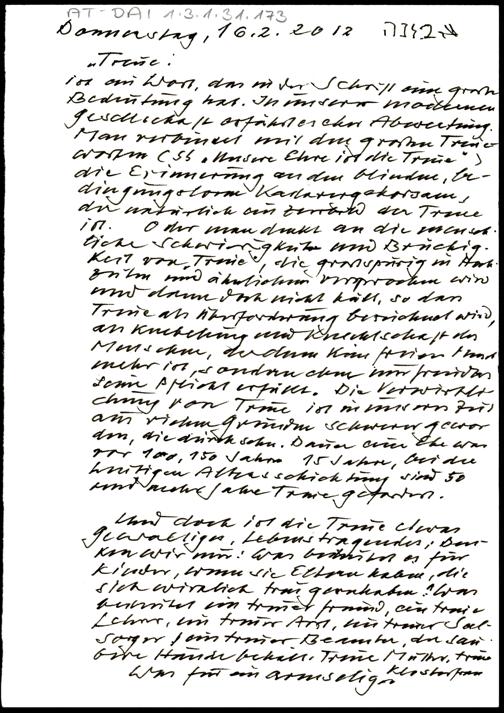 AT-DAI 1.3.1.31.173
Donnerstag, 16.2.2012
"Treue":
ist ein Wort, das in der Schrift eine große
Bedeutung hat. In unserer modernen
Gesellschaft erfährt es eher Abwertung.
Man verbindet mit den großen Treue
worten (SS "Unsere Ehre ist die Treue")
die Erinnerung an den blinden, be-
dingungslosen Kadavergehorsam,
der natürlich ein der Treue
ist. Oder man denkt an die mensch-
liche Schwierigkeit und Brüchig-
keit von "Treue", die großspurig in
und ähnlichem versprochen wird
und dann doch nicht hält, so dass
Treue als Überforderung bezeichnet wird,
als Knebelung und Knechtschaft des
Menschen, der dann kein freier Hund
mehr ist, sondern eben
seine Pflicht erfüllt. Die Verwirkli-
chung von Treue ist in unserer Zeit
aus vielen Gründen schwerer gewor
den, die Dauer einer Ehe war
vor 100, 150 Jahren 15 Jahre, bei der
heutigen Altersschichtung sind 50
und mehr Jahre Treue gefordert.
Und doch ist die Treue etwas
Gewaltiges, Lebenstragendes; Den-
ken wir nur: Was bedeutet es für
Kinder, wenn sie Eltern haben, die
sich wirklich treu gern haben! Was
bedeutet ein treuer Freund, ein treuer
Lehrer, ein treuer Arzt, ein treuer Seel-
sorger, ein treuer Beamter, der sau-
bere Hände behält. Treue Mutter, treue
Klosterfrau
Was für ein armseliger